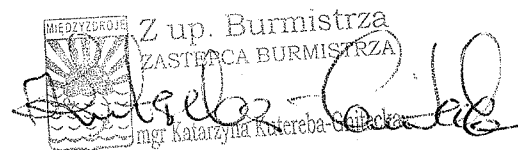 MIĘDZYZDROJE
Z up. Burmistrza
ZASTĘPCA BURMISTRZA
mgr Katarzyna Kutereba-Gnilacka